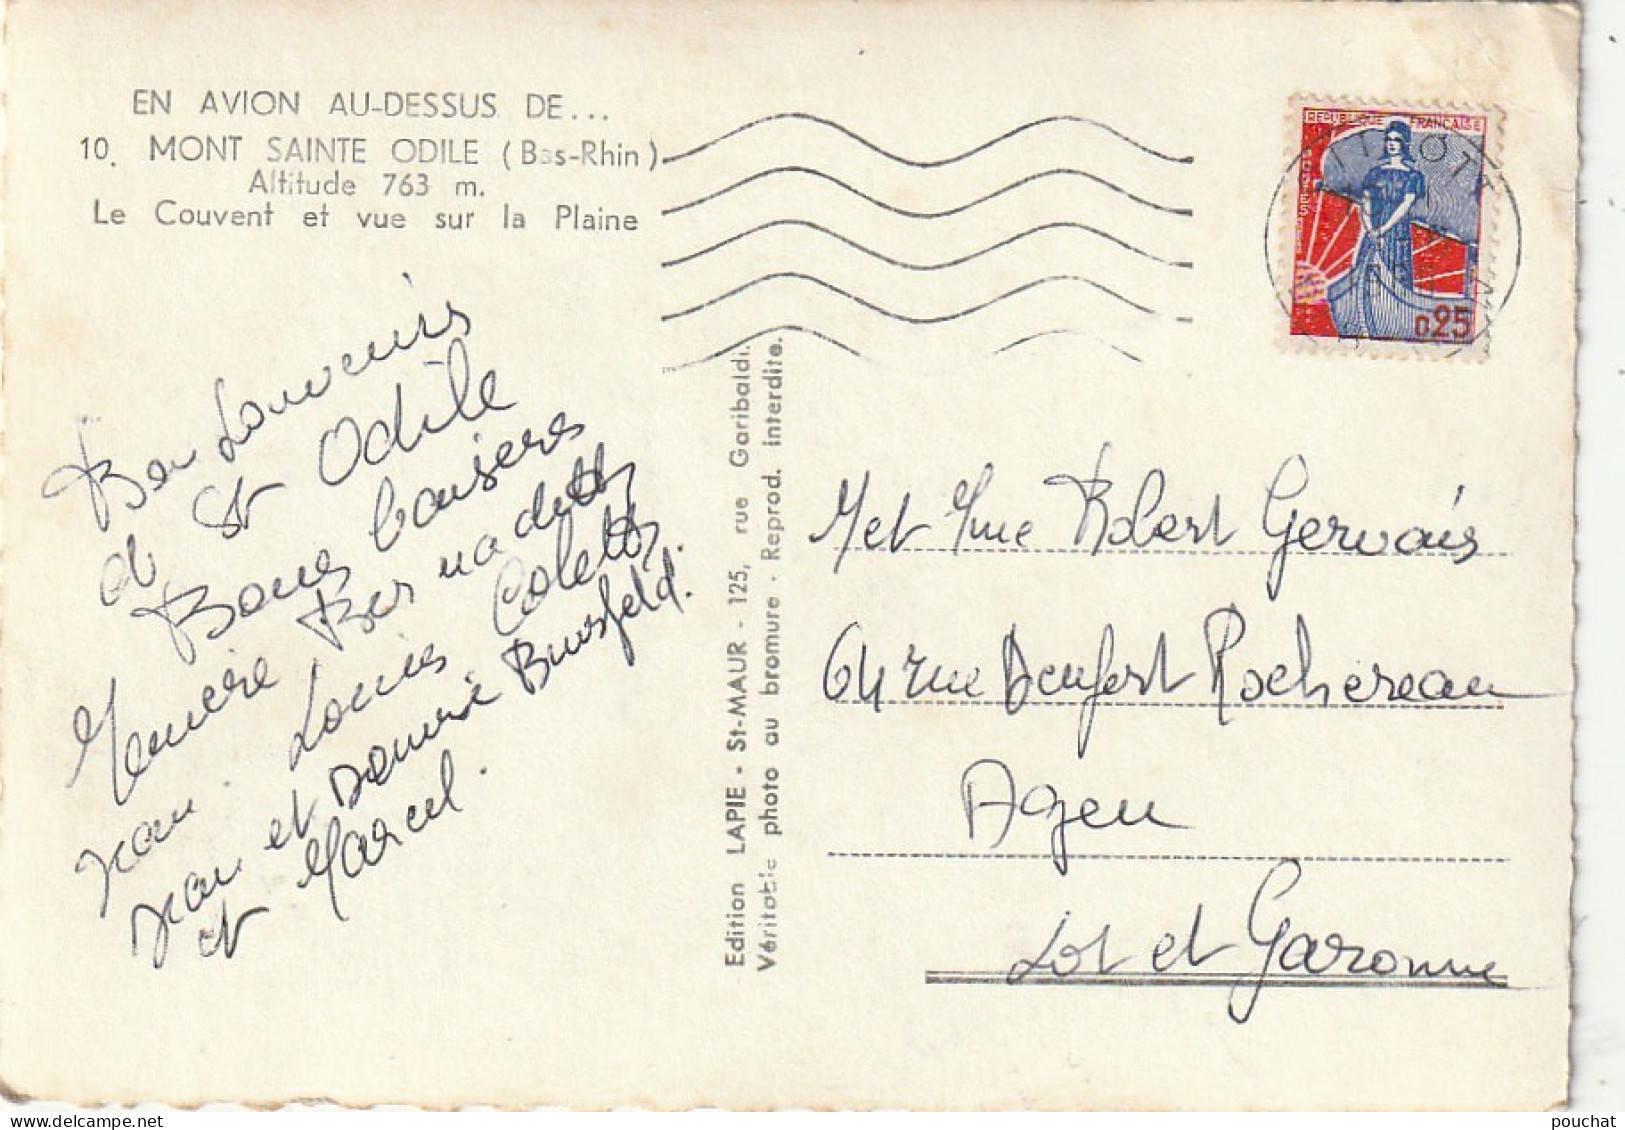 EN AVION AU-DESSUS DE...
10. MONT SAINTE ODILE (Bas-Rhin)
Altitude 763 m.
Le Couvent et vue sur la Plaine
Bon Souvenirs
de St Odile
Bones baiseres
Bernadette
Jean. Louis Colette.
Jean et Bumsfeld.
et Marcel.
Edition LAPIE - St-MAUR - 125, rue Garibaldi.
Véritable photo au bromure - Reprod. interdite.
REPUBLIQUE FRANÇAISE
POSTES
0,25
M et Mme Robert Gervais
64 rue Denfert Rochereau
Agen
Lot et Garonne
delcampe.net
pouchat